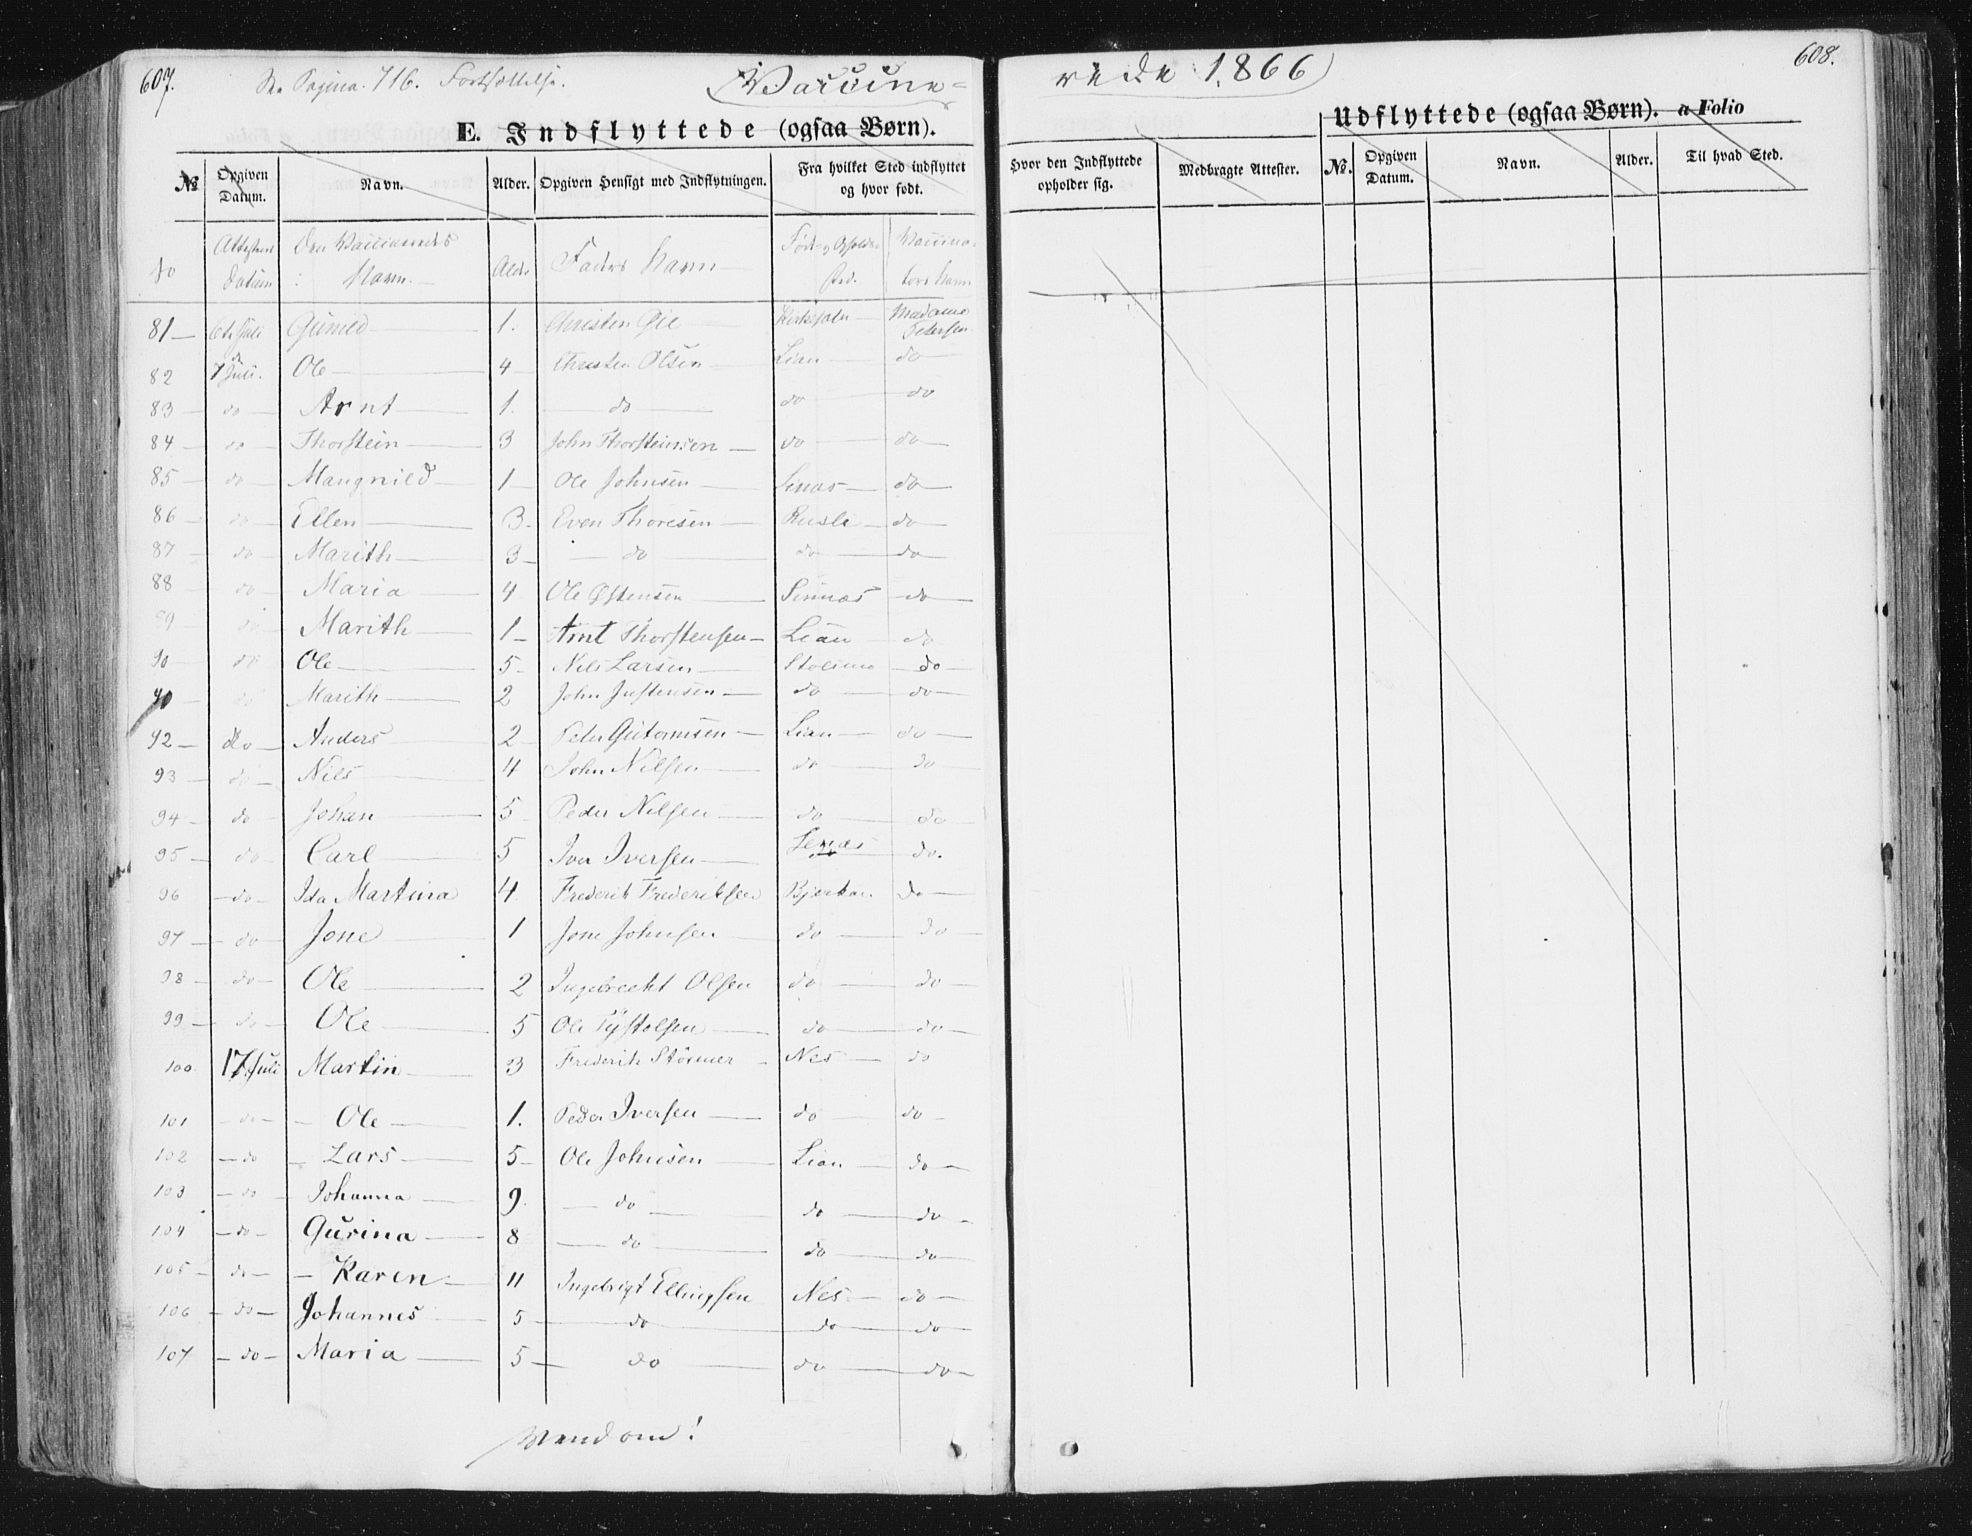 607.
Se Pagina. 716. Fortsættelse.
Vaccine=
rede 1866
608.
E. Indflyttede (ogsaa Børn).
Udflyttede (ogsaa Børn). a Folio
№ | Opgiven Datum. | Navn. | Alder. | Opgiven Hensigt med Indflytningen. | Fra hvilket Sted indflyttet og hvor født.
Hvor den Indflyttede opholder sig. | Medbragte Attester. | №. | Opgiven Datum. | Navn. | Alder. | Til hvad Sted.
No | Attestens Datum | Den Vaccineredes Navn. | Alder | Faders Navn | Føde- og Opholds- sted. | Vaccina- tors Navn
81 | 6te Juli | Guned | 1. | Christen Øie | | Madame Petersen
82 | 7 Juli. | Ole | 4 | Christen Olsen | Lian | do
83 | do | Arnt | 1. | do | do | do
84 | do | Thorstein | 3 | John Thorsteinsen | do | do
85 | do | Mangnild | 1 | Ole Johnsen | Semas | do
86 | do | Ellen | 3 | Even Thoresen | Rusli | do
87 | do | Marith | 3 | do | do | do
88 | do | Maria | 4 | Ole Østensen | Semas | do
89 | do | Marith | 1 | Arnt Thorstensen | Lian | do
90 | do | Ole | 5 | Nils Larsen | Stolsmo | do
90 | do | Marith | 2 | John Justensen | do | do
92 | do | Anders | 2 | Peder Gutormsen | Lian | do
93 | do | Nils | 4 | John Nilsen | do | do
94 | do | Johan | 5 | Peder Nilsen | do | do
95 | do | Carl | 5 | Iver Iversen | Semas | do.
96 | do | Ida Martina | 4 | Frederik Frederiksen | Bjerkan | do
97 | do | Jone | 1 | Jone Johnsen | do | do
98 | do | Ole | 2 | Ingebrecht Olsen | do | do
99 | do | Ole | 5 | Ole Tystolsen | do | do
100 | 17 Juli | Martin | 3 | Frederik Störmer | Nes | do
101 | do | Ole | 1. | Peder Iversen | do | do
102 | do | Lars | 5 | Ole Johnsen | Lian | do
103 | do | Johanna | 9. | do | do | do
104 | do | Gurina | 8 | do | do | do
105 | do | Karen | 11 | Ingebrigt Ellingsen | Nes | do
106 | do | Johannes | 5 | do | do | do
107 | do | Maria | 5 | do | do | do
Vend om!